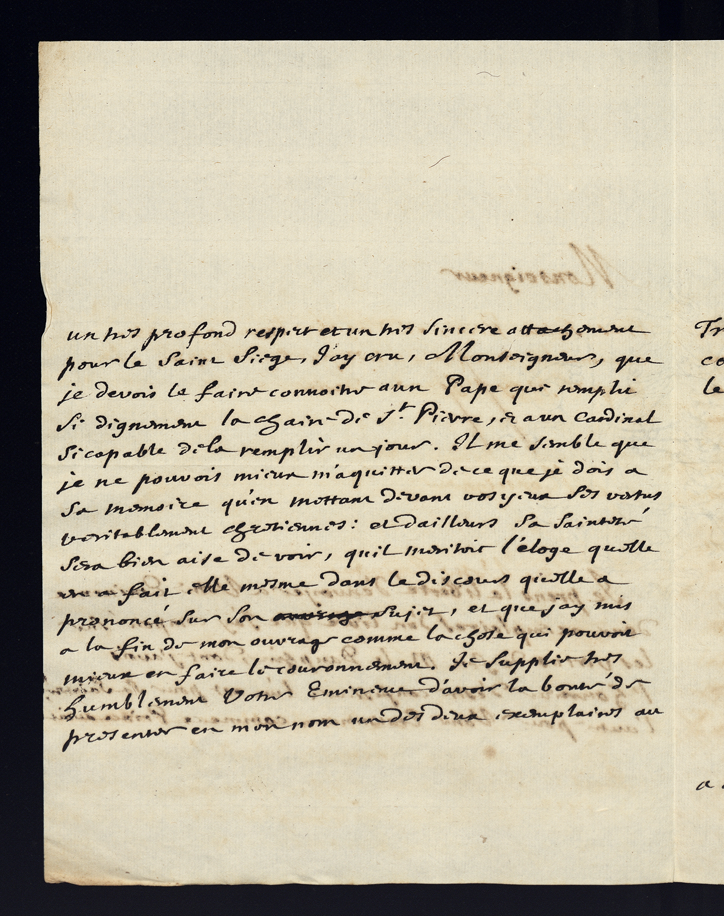 un tres profond respect et un tres sincere attachement
pour le Saint Siege, J'ay cru, Monseigneur, que
je devois le faire connoitre a un Pape qui rempli
si dignement la chaire de St. Pierre, et a un Cardinal
si capable de la remplir un jour. Il me semble que
je ne pouvois mieux m'aquitter de ce que je dois a
sa memoire qu'en mettant devant vos yeux ses vertus
veritablement chretiennes: et d'ailleurs Sa Sainteté
sera bien aise de voir, quil meritoit l'éloge quelle
en a fait elle mesme dans le discours quelle a
prononcé sur son ouvrage sujet, et que j'ay mis
a la fin de mon ouvrage comme la chose qui pouvoit
mieux en faire le couronnement. Je supplie tres
humblement Votre Eminence d'avoir la bonté de
presenter en mon nom un des deux exemplaires au
Monseigneur
Tr
co
le
a